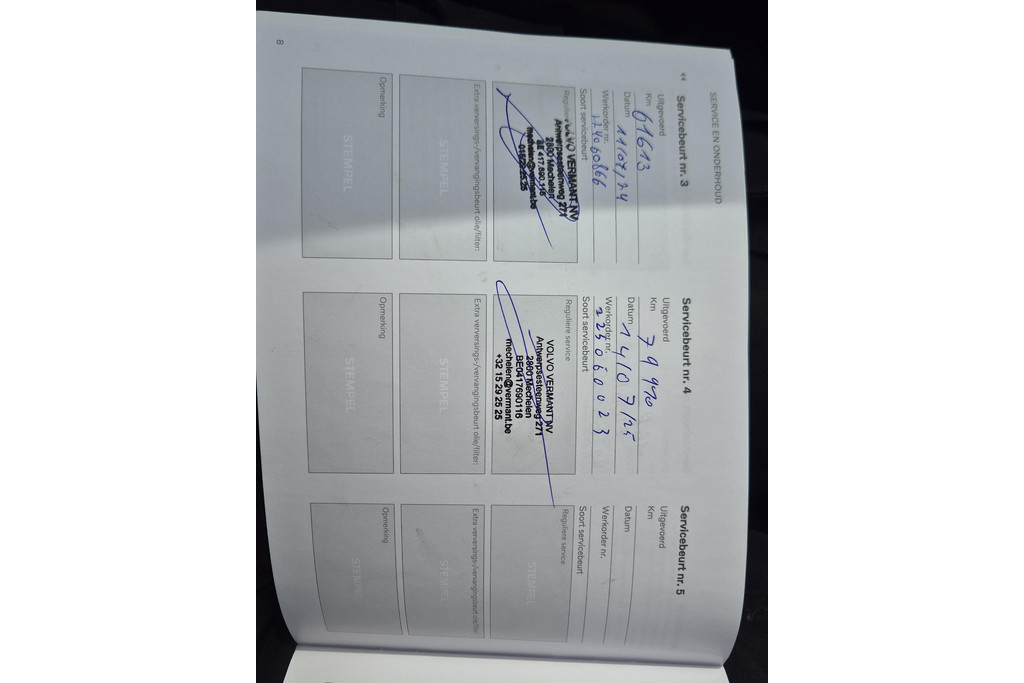 SERVICE EN ONDERHOUD
Servicebeurt nr. 3
Uitgevoerd
Km 61613
Datum 11/07/24
Werkorder nr.
Soort servicebeurt
VOLVO VERMANT NV
Antwerpsesteenweg 271
2800 Mechelen
BE 417.690.116
mechelen@vermant.be
Extra verversings-/vervangingsbeurt olie/filter:
STEMPEL
Opmerking
STEMPEL
Servicebeurt nr. 4
Uitgevoerd
Km 79990
Datum 14/07/25
Werkorder nr.
Soort servicebeurt
Reguliere service
VOLVO VERMANT NV
Antwerpsesteenweg 271
2800 Mechelen
BE0417690116
mechelen@vermant.be
+32 15 29 25 25
Extra verversings-/vervangingsbeurt olie/filter:
STEMPEL
Opmerking
STEMPEL
Servicebeurt nr. 5
Uitgevoerd
Km
Datum
Werkorder nr.
Soort servicebeurt
Reguliere service
STEMPEL
Extra verversings-/vervangingsbeurt olie/filter:
STEMPEL
Opmerking
STEMPEL
8